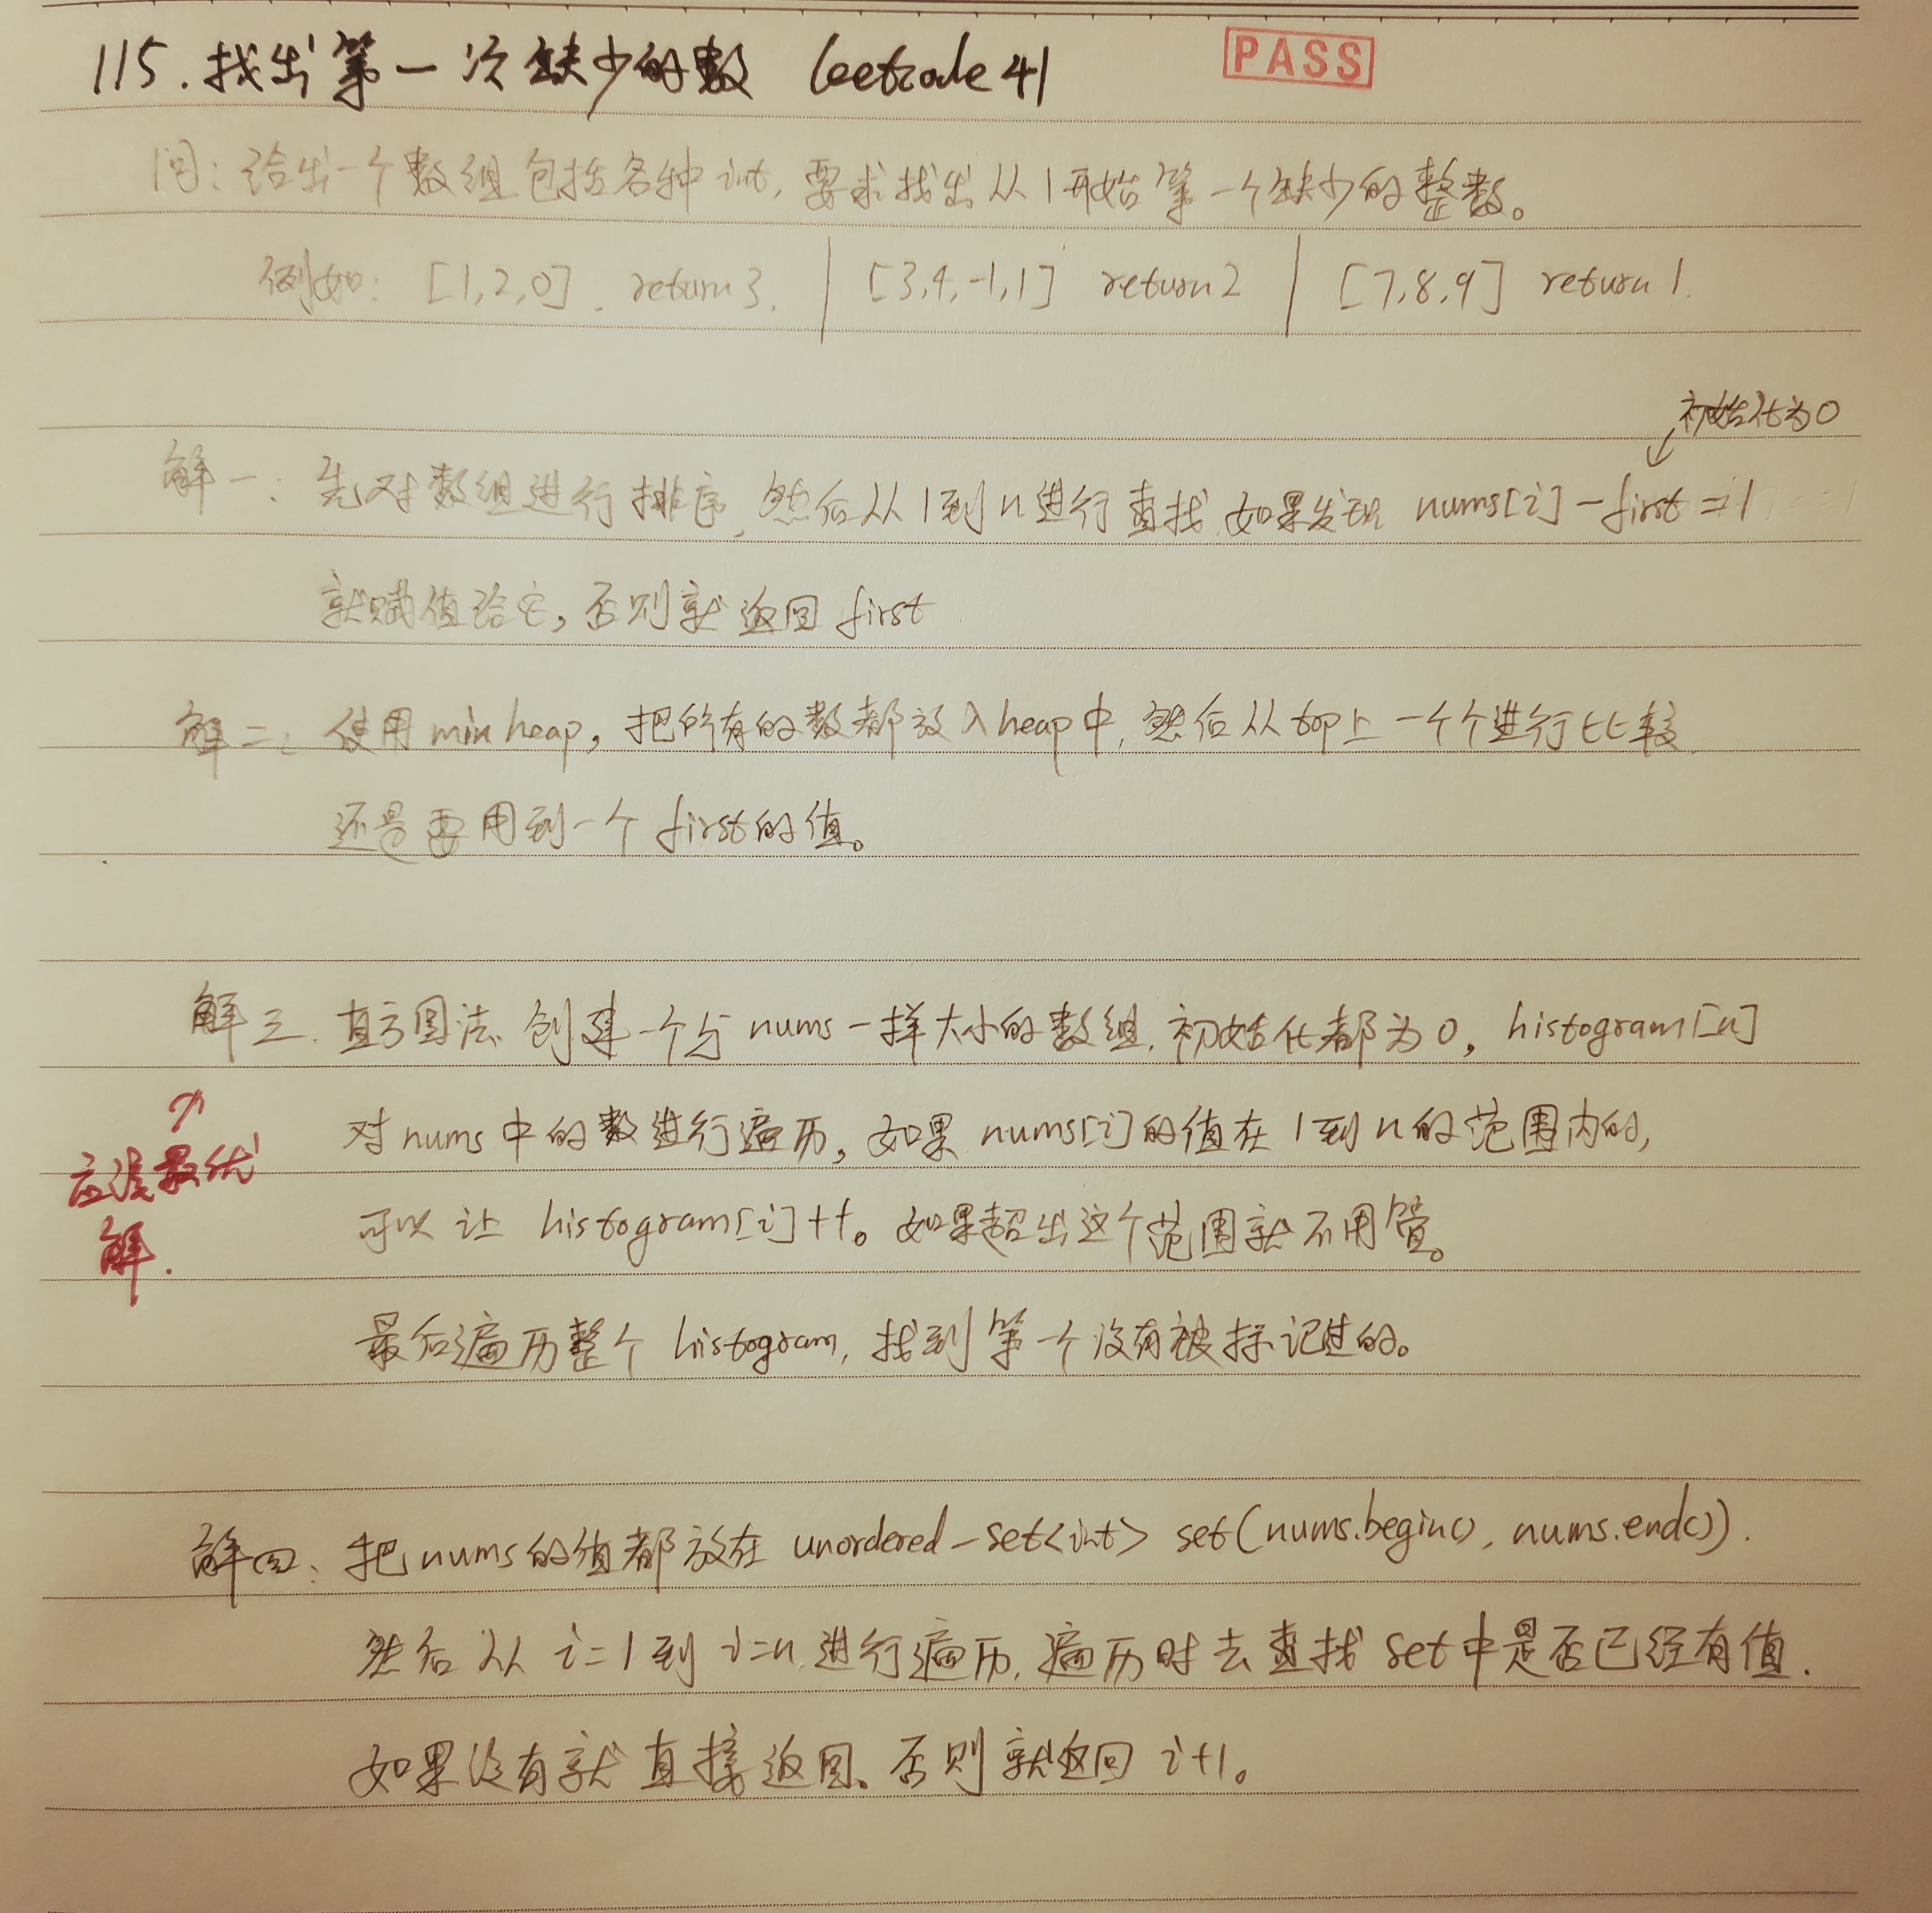 115.找出第一次缺少的数 leetcode 41 PASS
问:给出一个数组包括各种int,要求找出从1开始第一个缺少的整数。
例如: [1,2,0]. return 3. | [3,4,-1,1] return 2 | [7,8,9] return 1.
初始化为0
解一:先对数组进行排序,然后从1到n进行查找.如果发现 nums[i]-first=1
就赋值给它,否则就返回first
解二:使用min heap,把所有的数都放入heap中,然后从top上一个个进行比较.
还是要用到一个first的值。
解三.直方图法.创建一个与nums一样大小的数组,初始化都为0, histogram[n]
对nums中的数进行遍历,如果nums[i]的值在1到n的范围内的,
应该最优
可以让 histogram[i]++。如果超出这个范围就不用管。
解.
最后遍历整个histogram,找到第一个没有被标记过的。
解四:把nums的值都放在 unordered-set<int> set(nums.begin(), nums.end()).
然后从i=1到i=n.进行遍历,遍历时去查找set中是否已经有值.
如果没有就直接返回、否则就返回i+1。